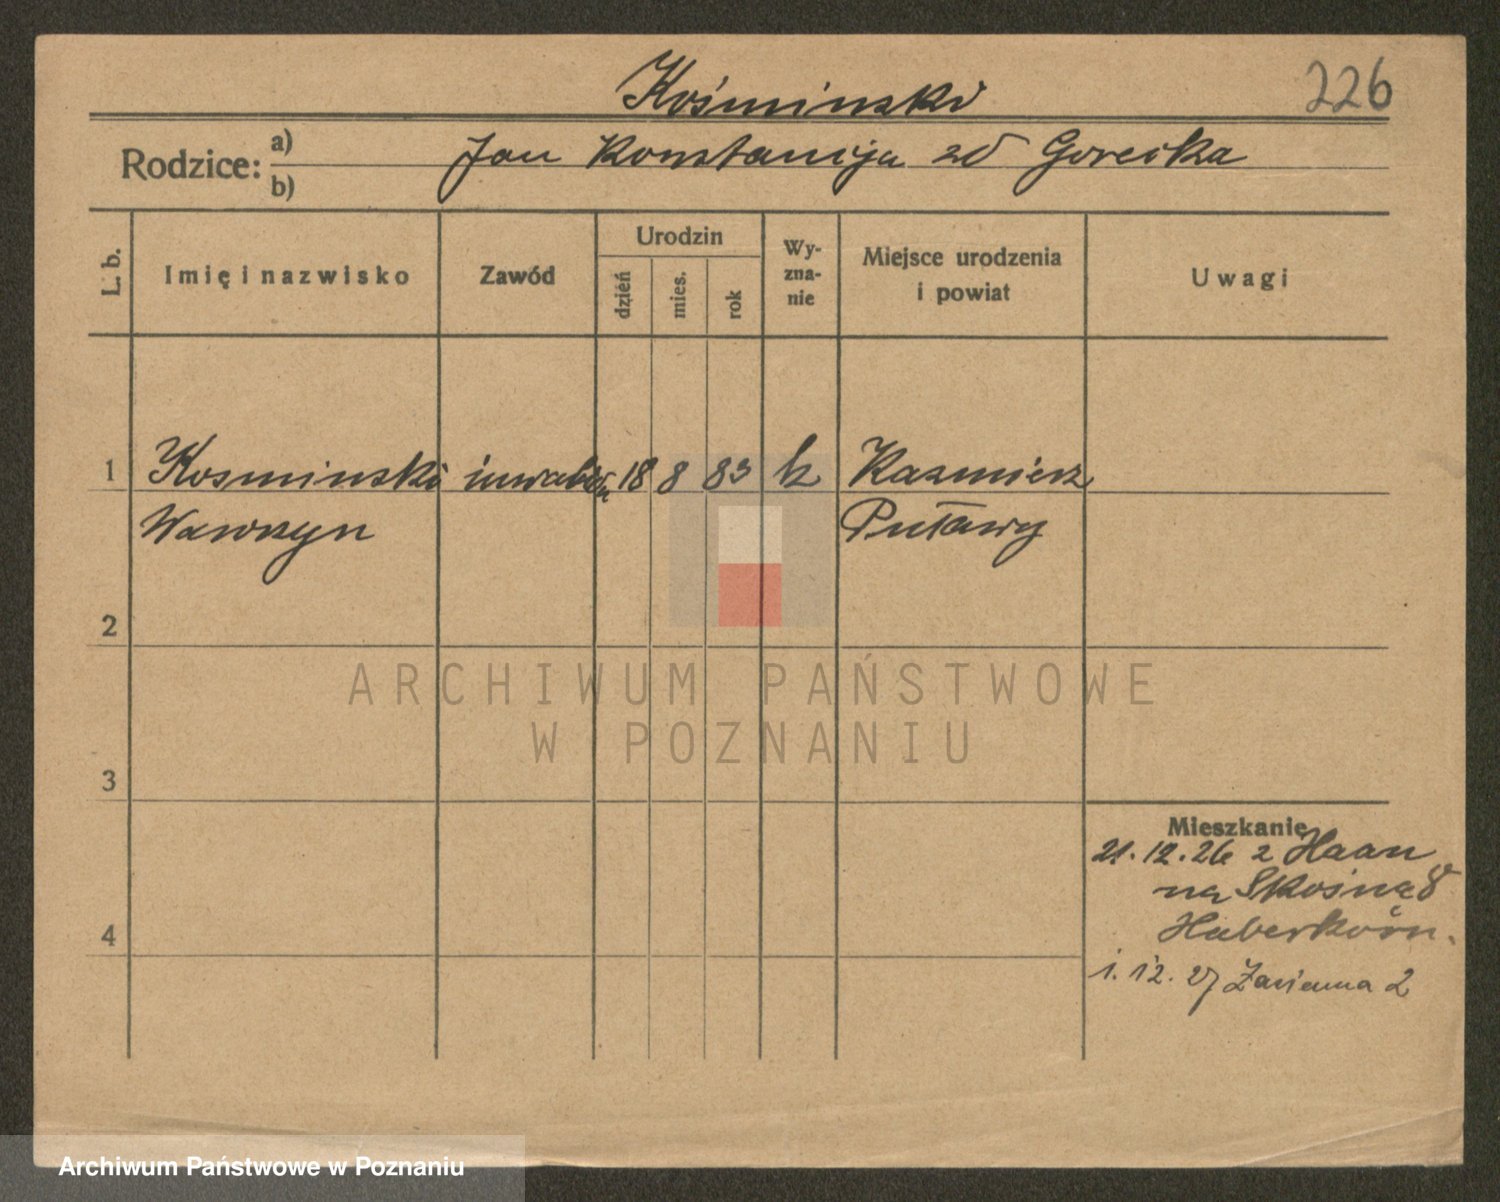 Kośminski
226
Rodzice: a) b)
Jan Konstancija zd Gorecka
L. b.
Imię i nazwisko
Zawód
Urodzin
dzień
mies.
rok
Wy-
zna-
nie
Miejsce urodzenia
i powiat
Uwagi
1 Kosminski 18 8 83 k Kazmierz
Wawrzyn Puławy
2
ARCHIWUM PAŃSTWOWE
W POZNANIU
3
Mieszkanie
21.12.26 z Haan
na Skośną 8
Haberkorn.
4
1.12.27 2
Archiwum Państwowe w Poznaniu